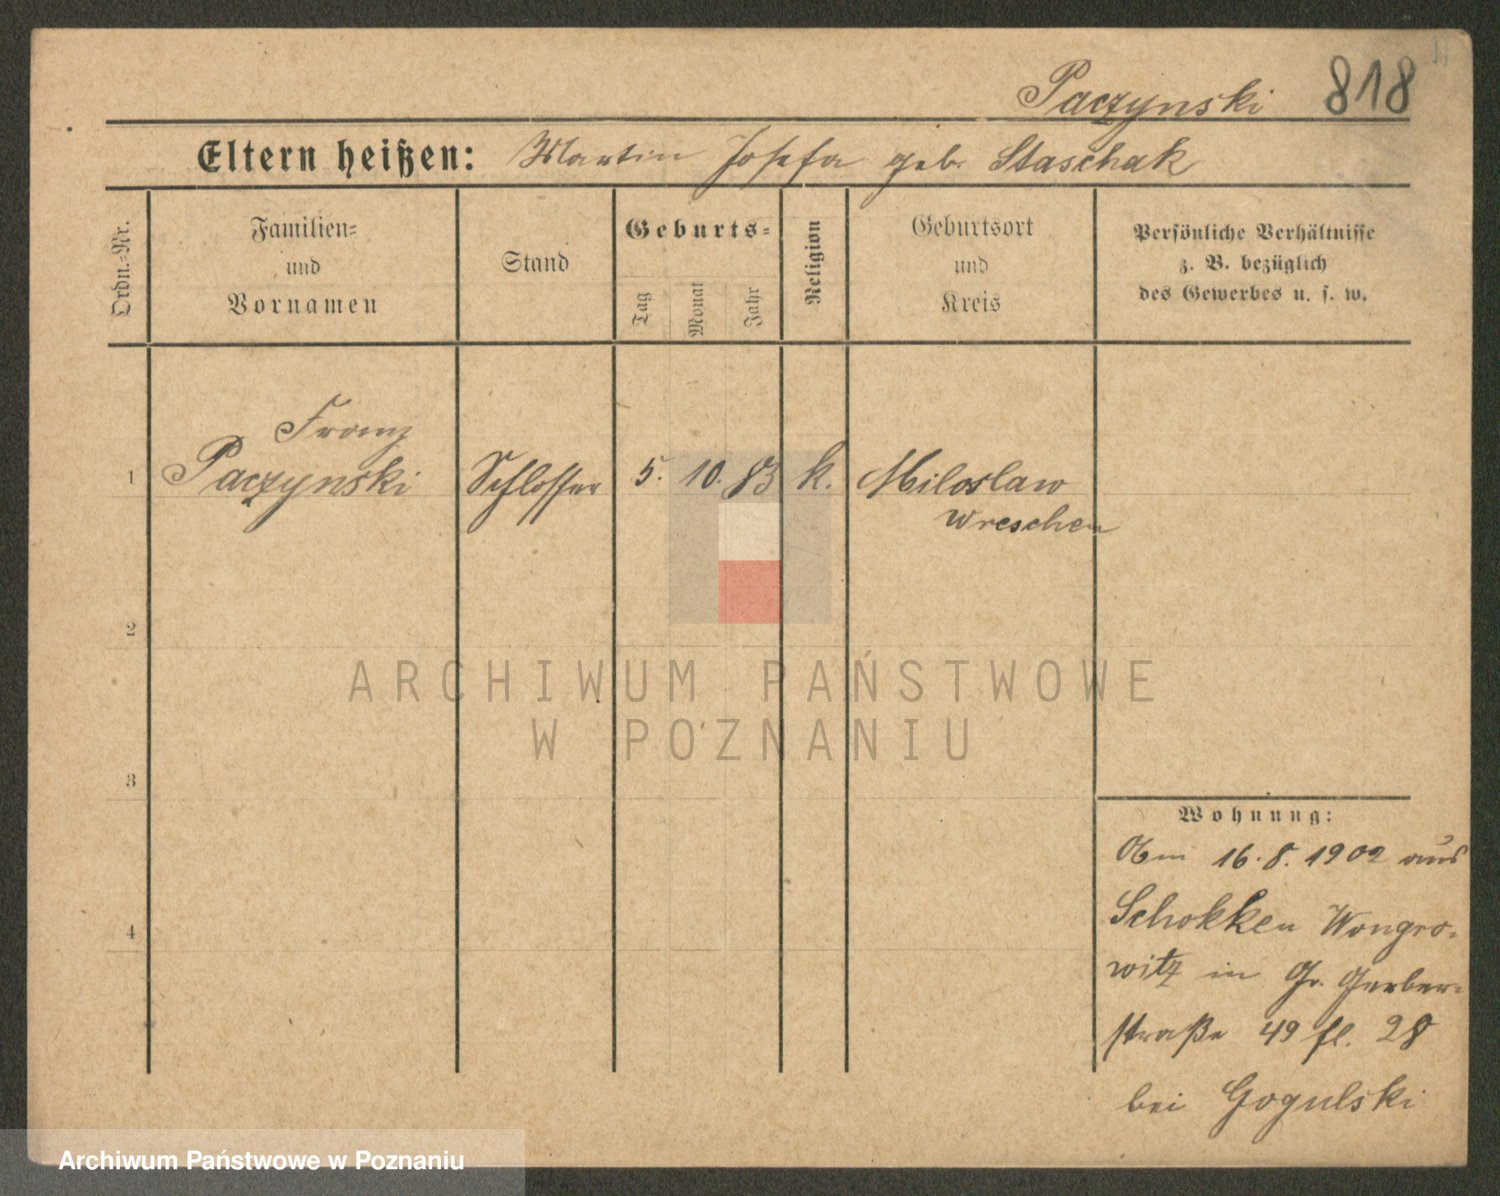 Paczynski 818
Eltern heißen: Martin Josefa geb. Staschak
Ordn.-Nr.
Familien=
und
Vornamen
Stand
Geburts=
Tag
Monat
Jahr
Religion
Geburtsort
und
Kreis
Persönliche Verhältnisse
z. B. bezüglich
des Gewerbes u. s. w.
Franz
1 Paczynski Schlosser 5. 10. 83 k. Miloslaw
Wreschen
2
ARCHIWUM PAŃSTWOWE
W POZNANIU
3
Wohnung:
Am 16.8.1902 aus
Schokken Wongro-
witz in Gr. Gerber-
straße 49 fl. 28
bei Gogulski
4
Archiwum Państwowe w Poznaniu